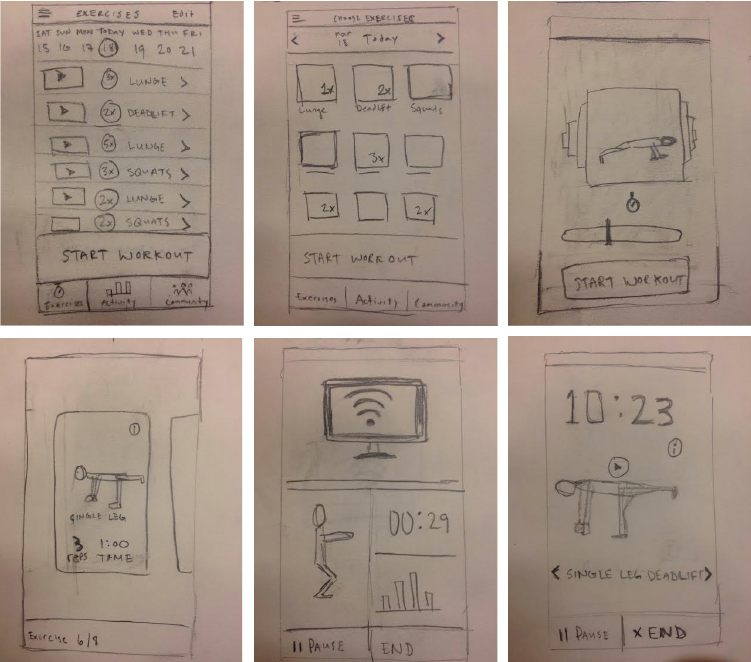 EXERCISES Edit
SAT SUN MON TODAY WED THU FRI
15 16 17 18 19 20 21
3x LUNGE >
2x DEADLIFT >
5x LUNGE >
3x SQUATS >
2x LUNGE >
2x SQUATS
START WORKOUT
Exercises Activity Community
CHOOSE EXERCISES
< Mar 18 Today >
1x 2x
Lunge Deadlift Squats
3x
2x 2x
START WORKOUT
Exercises Activity Community
START WORKOUT
i
SINGLE LEG
3 1:00
reps TIME
Exercise 6/8
00:29
II PAUSE END
10:23
i
< SINGLE LEG DEADLIFT >
II PAUSE X END